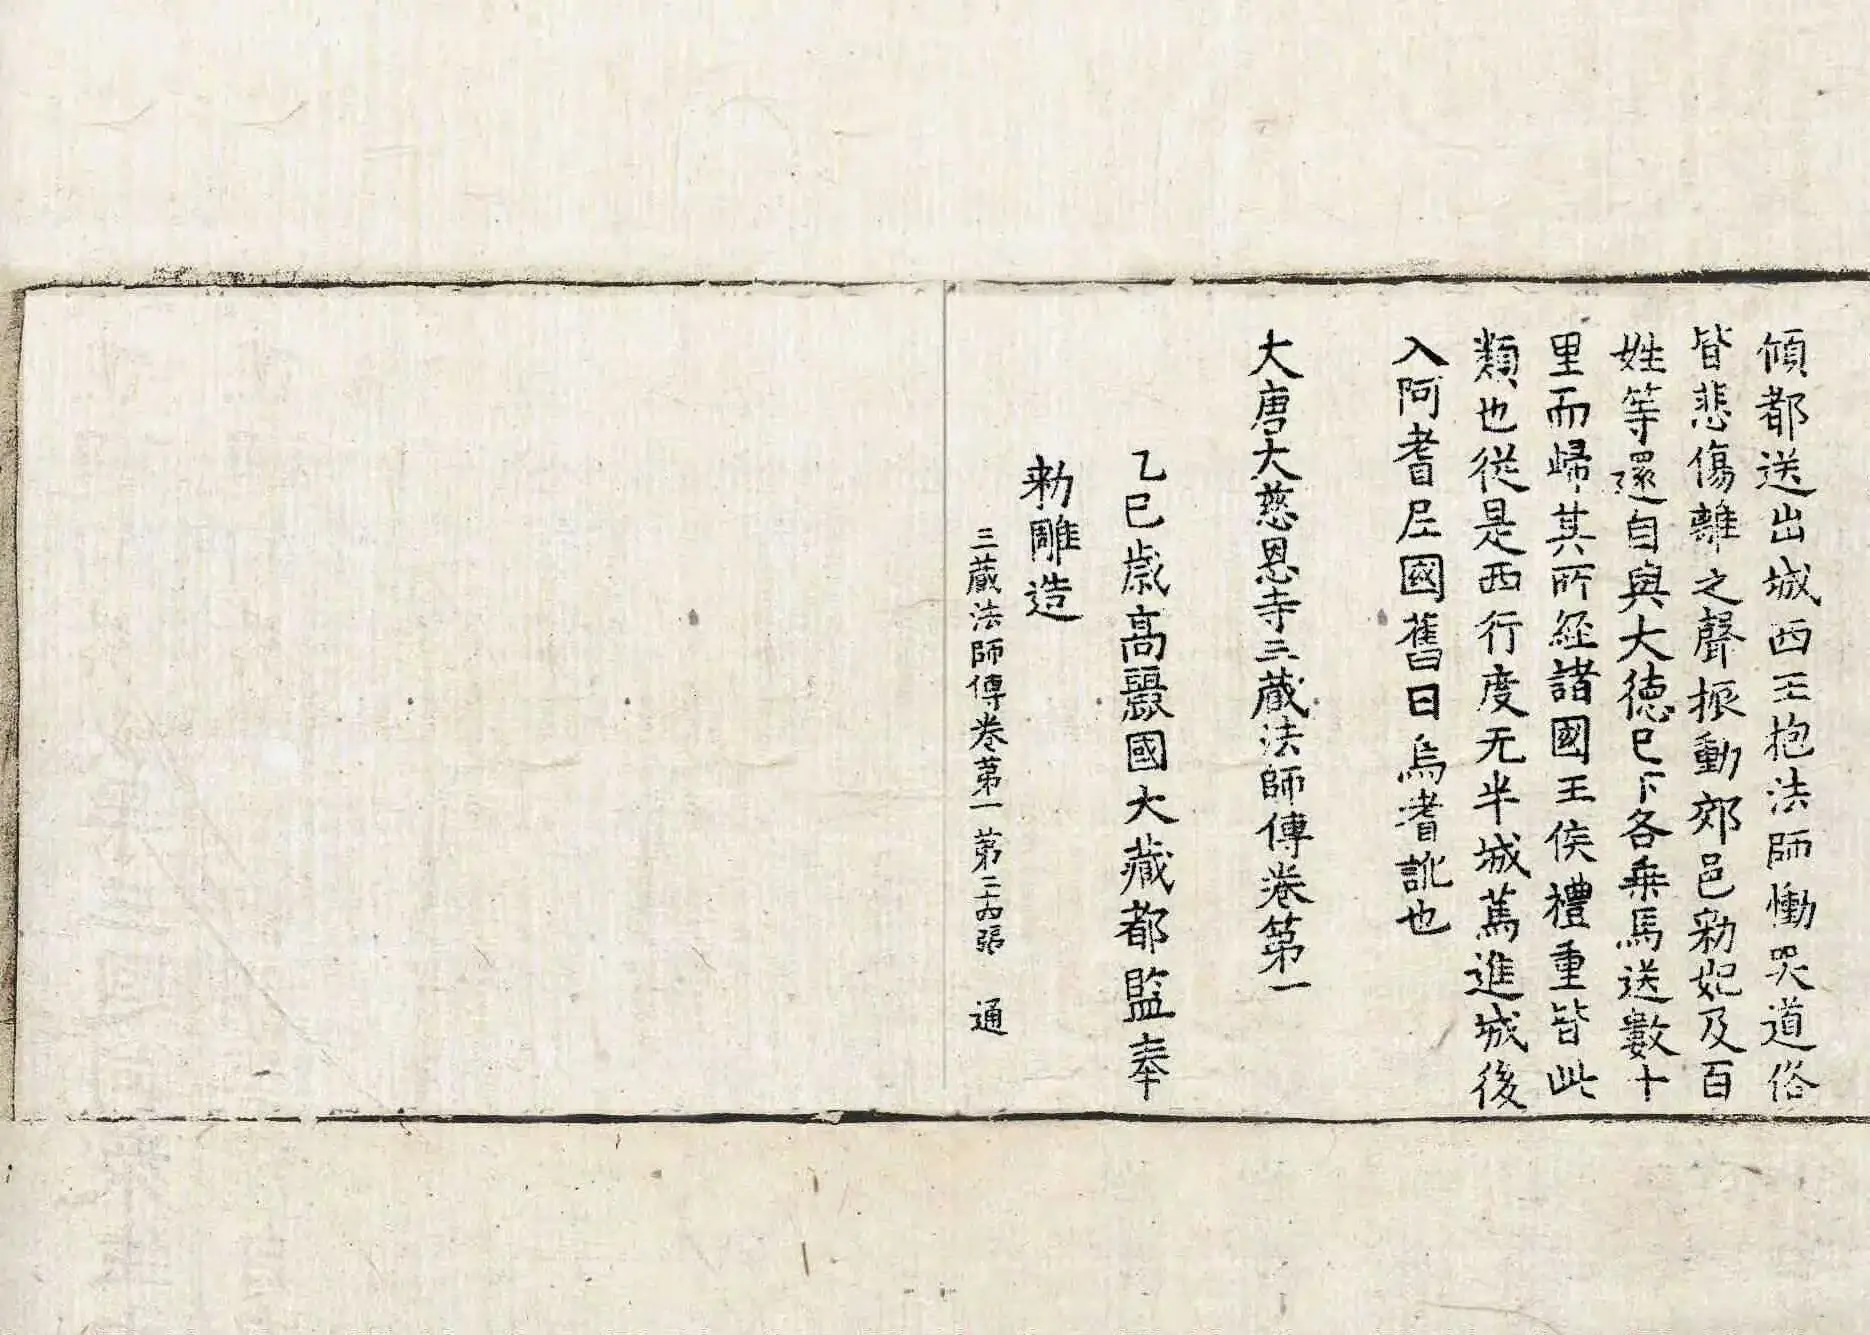 傾都送出城西王抱法師慟哭道俗
皆悲傷離之聲振動郊邑勑妃及百
姓等還自與大德已下各乗馬送數十
里而歸其所經諸國王侯禮重皆此
類也從是西行度无半城篤進城後
入阿耆尼國舊曰烏耆訛也
大唐大慈恩寺三藏法師傳卷第一
乙巳歲高麗國大藏都監奉
勑雕造
三藏法師傳卷第一 第二十四張 通